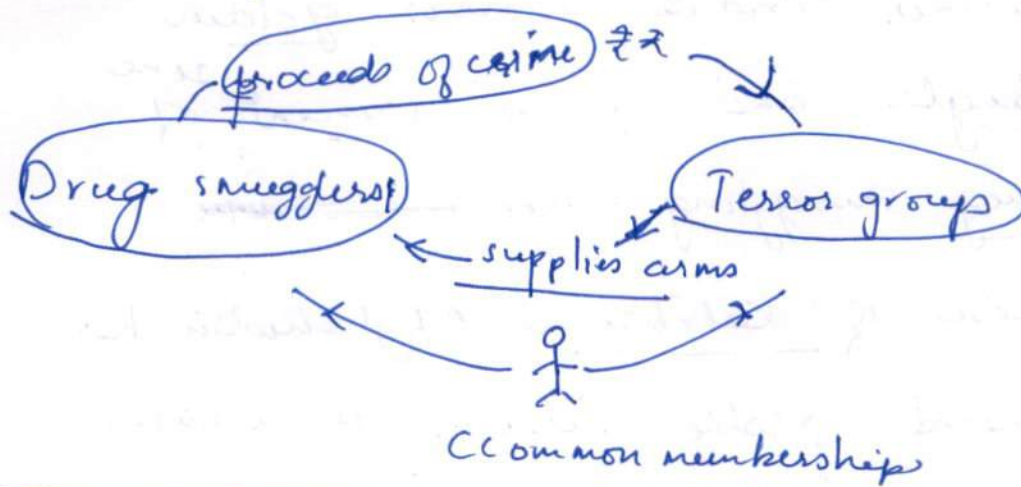 proceeds of crime ₹₹
Drug smugglers
Terror groups
supplies arms
Common membership